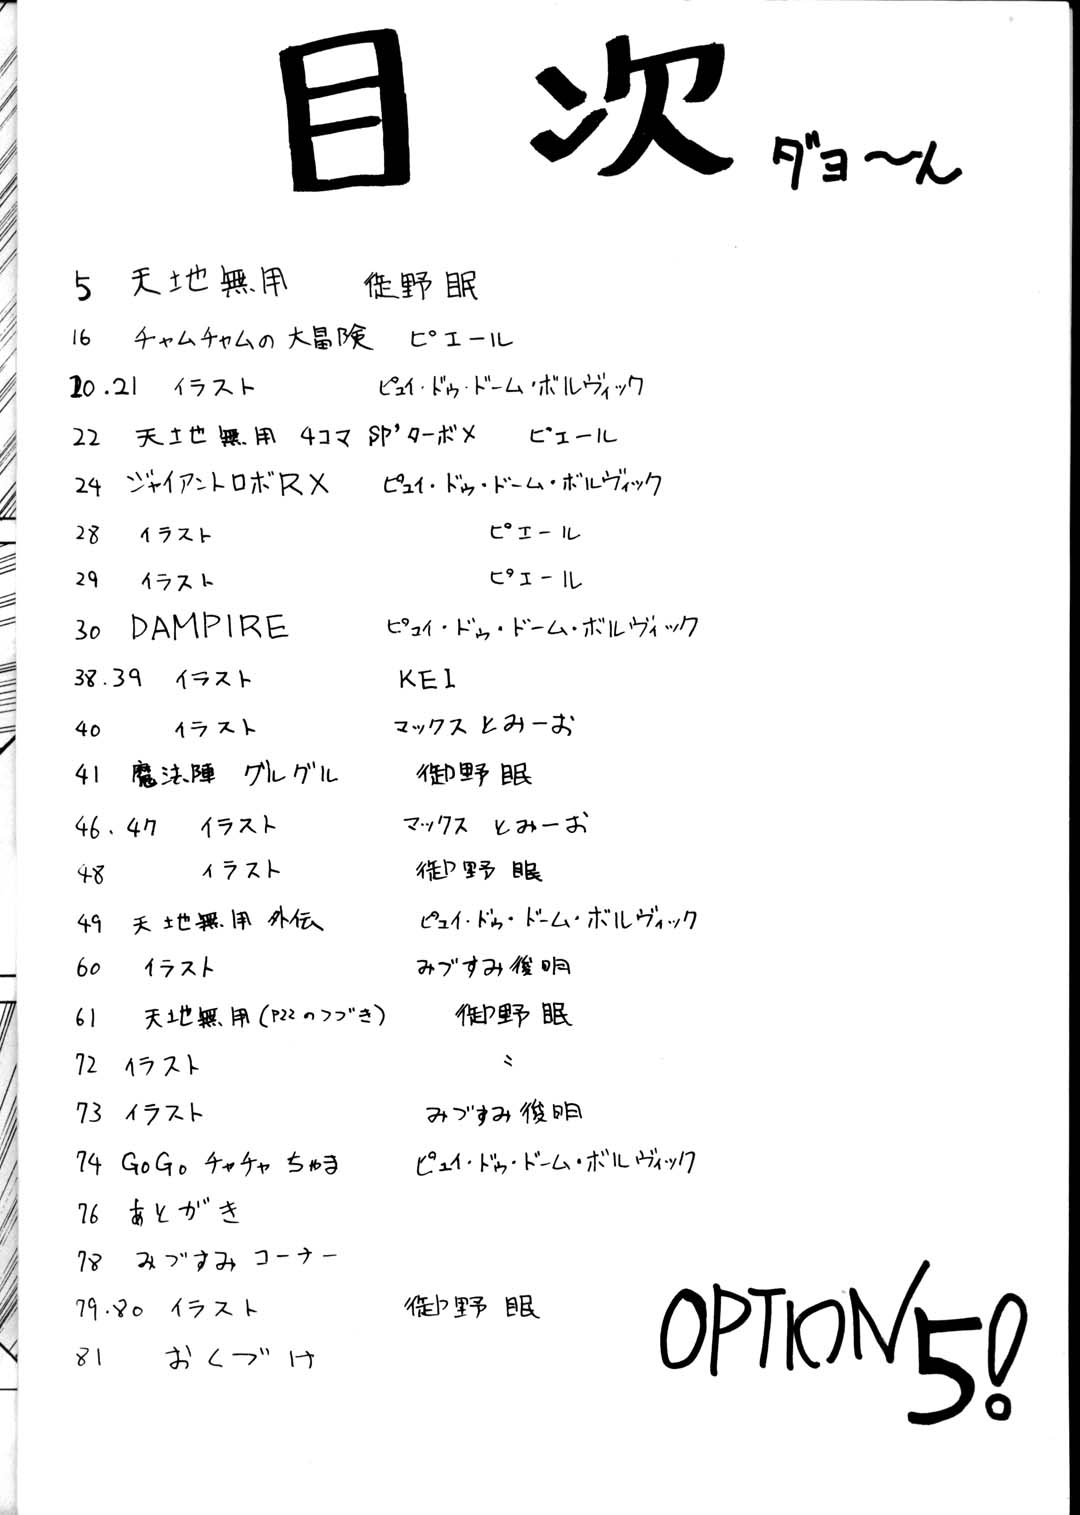 目次 ダヨ〜ん
5 天地無用 御野眠
16 チャムチャムの大冒険 ピエール
20.21 イラスト ピュイ・ドゥ・ドーム・ボルヴィック
22 天地無用 4コマ SP'ターボX ピエール
24 ジャイアントロボRX ピュイ・ドゥ・ドーム・ボルヴィック
28 イラスト ピエール
29 イラスト ピエール
30 DAMPIRE ピュイ・ドゥ・ドーム・ボルヴィック
38.39 イラスト KEI
40 イラスト マックスとみーお
41 魔法陣 グルグル 御野眠
46.47 イラスト マックス とみーお
48 イラスト 御野眠
49 天地無用 外伝 ピュイ・ドゥ・ドーム・ボルヴィック
60 イラスト みづすみ俊明
61 天地無用(P22のつづき) 御野眠
72 イラスト 〃
73 イラスト みづすみ俊明
74 GoGo チャチャ ちゃま ピュイ・ドゥ・ドーム・ボルヴィック
76 あとがき
78 みづすみ コーナー
79.80 イラスト 御野眠
81 おくづけ
OPTION5!